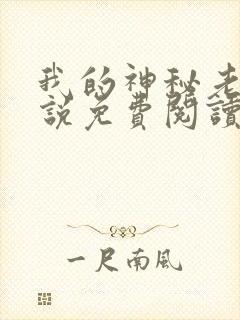 我的神秘老
說免費閱讀
一尺南風